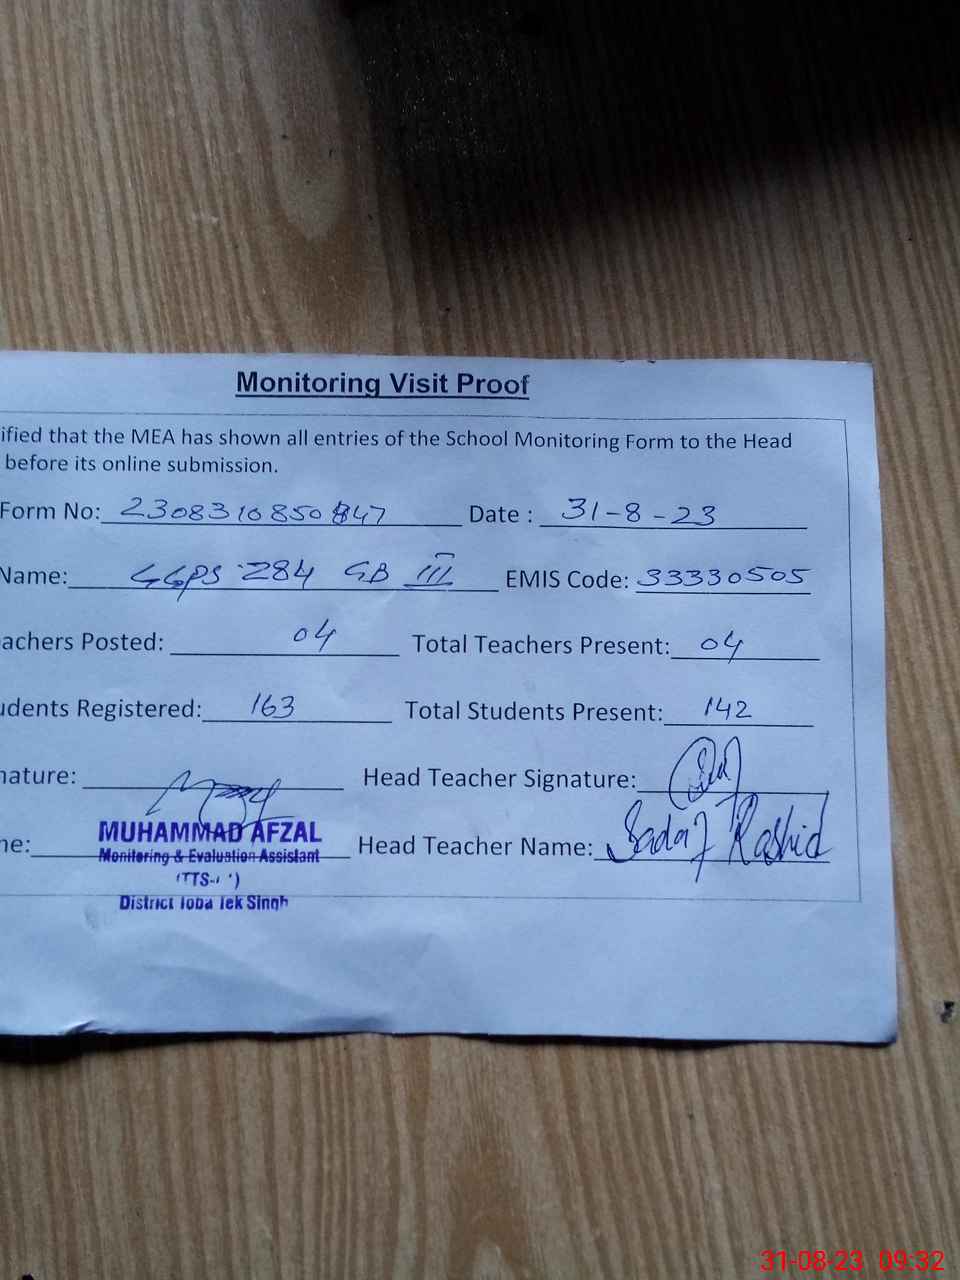 Monitoring Visit Proof
ified that the MEA has shown all entries of the School Monitoring Form to the Head
before its online submission.
Form No: 2308310850847 Date : 31-8-23
Name: GGPS 284 GB III EMIS Code: 33330505
achers Posted: 04 Total Teachers Present: 04
udents Registered: 163 Total Students Present: 142
nature: Head Teacher Signature:
ne: MUHAMMAD AFZAL Head Teacher Name: Sadaf Rashid
Monitoring & Evaluation Assistant
District Toba Tek Singh
31-08-23 09:32